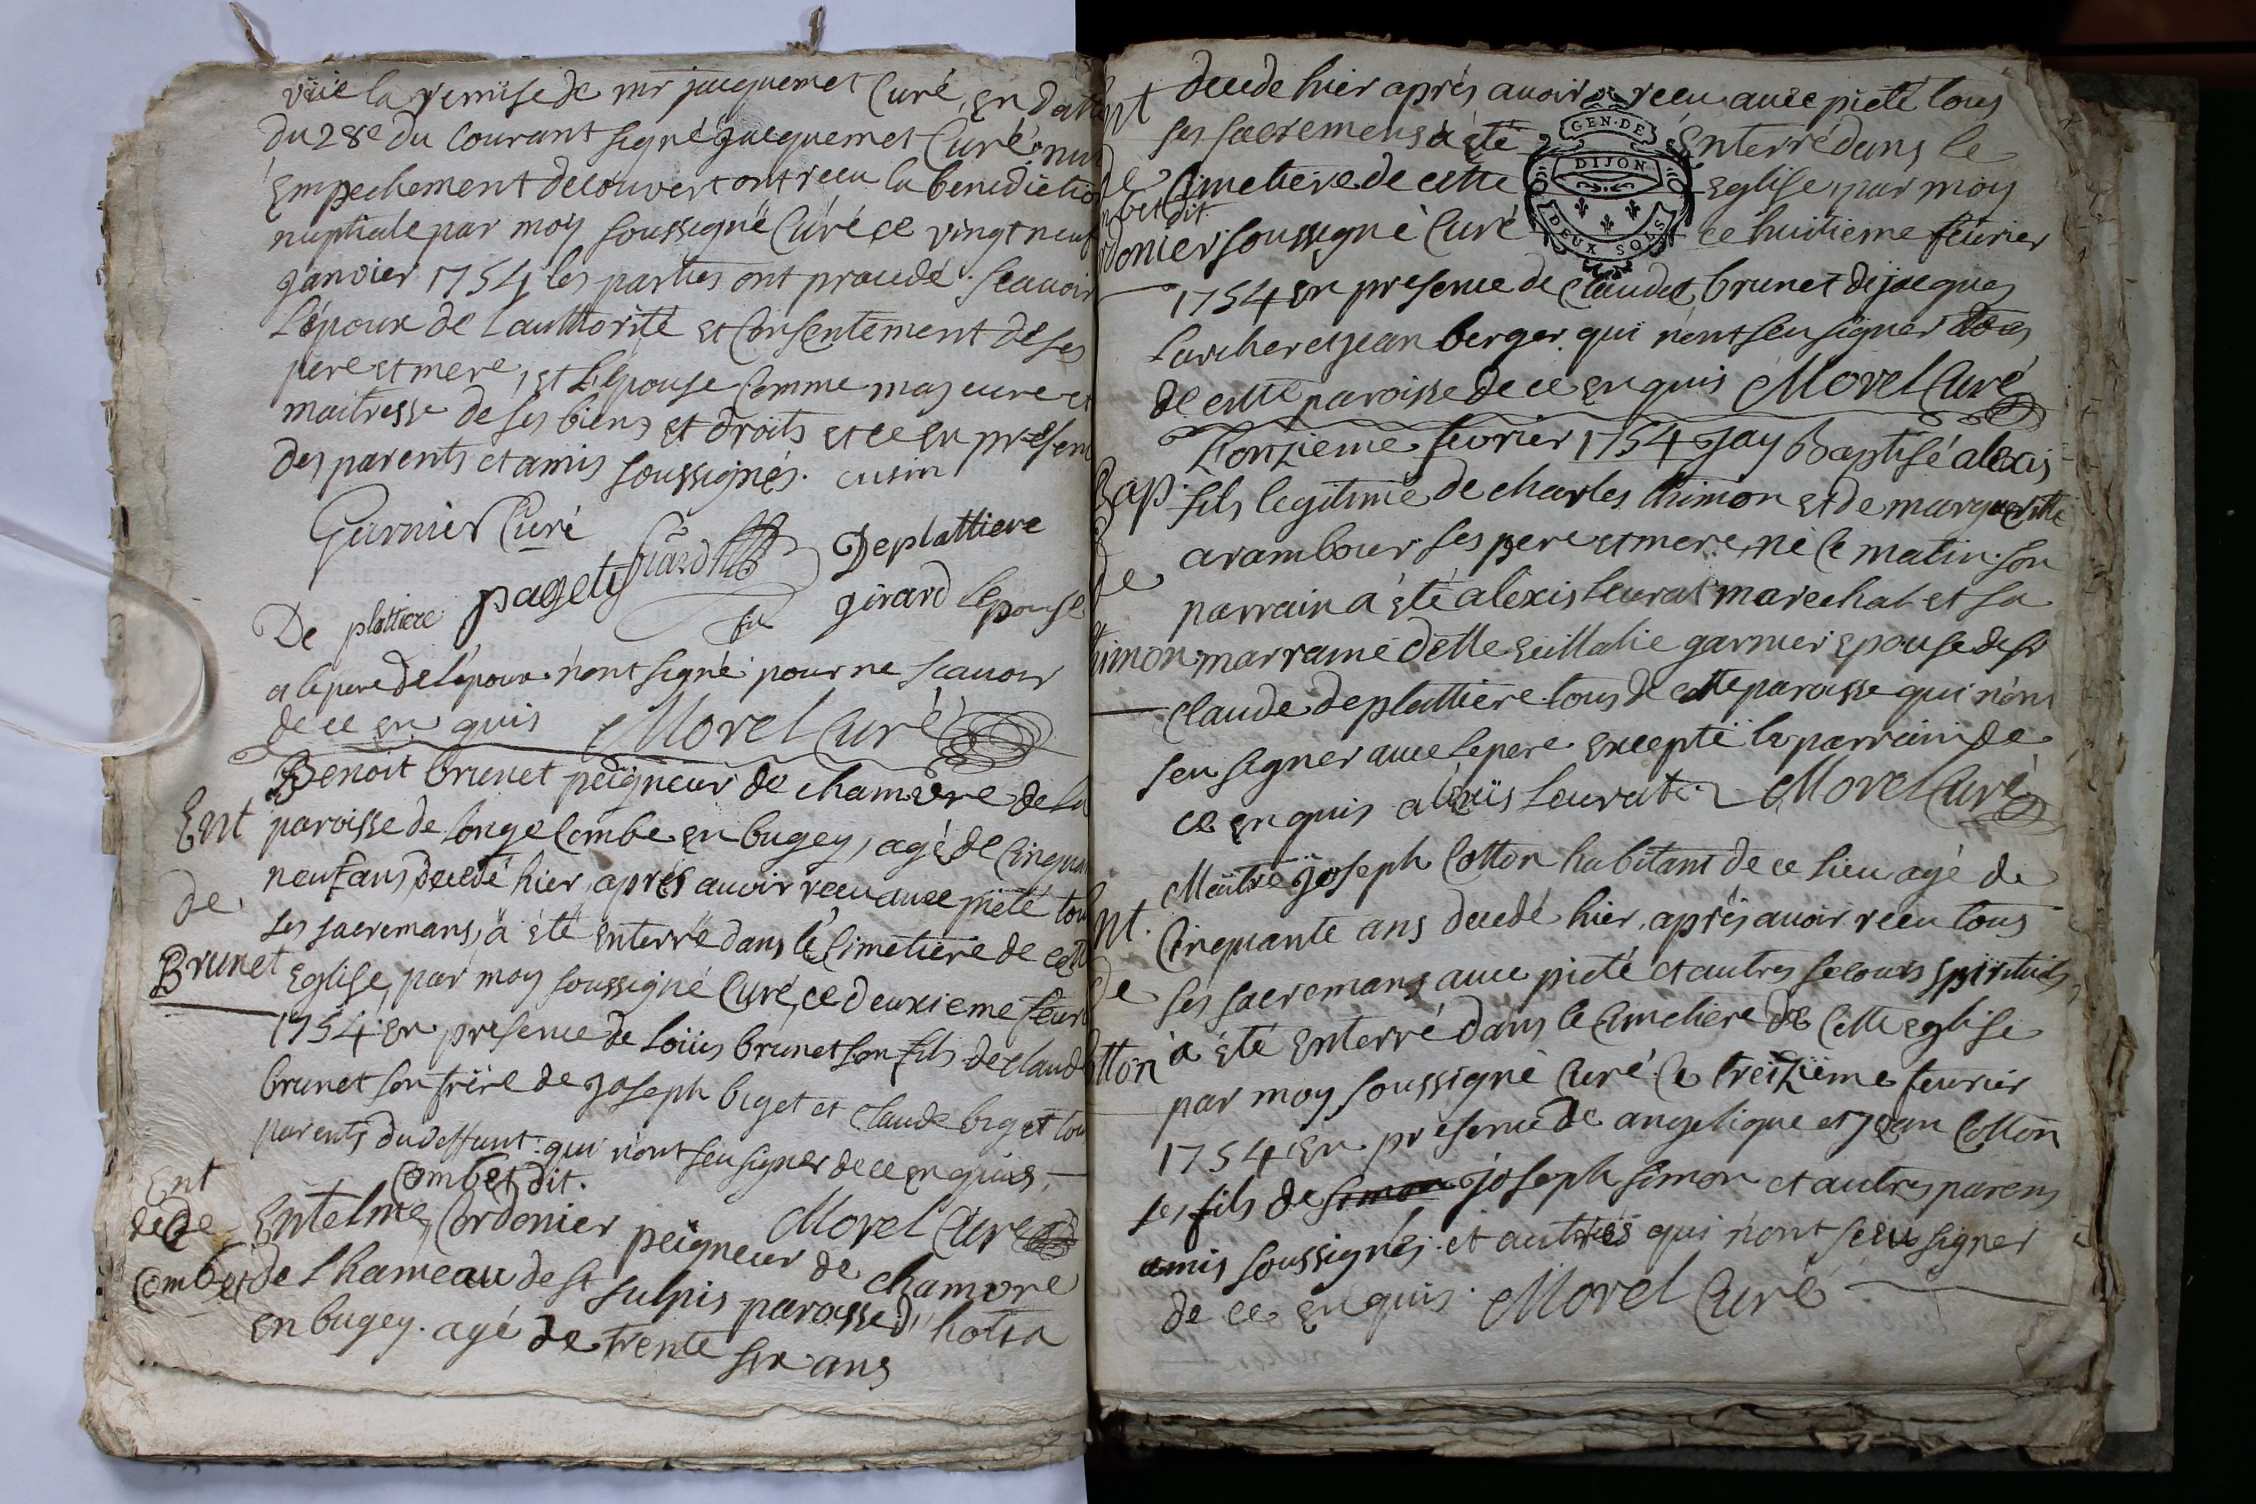 vüë la remise de mr jacquemet Curé, en datte
du 28e du Courant signé jacquemet Curé. nul
Empechement decouvert ont receu la benediction
nuptiale par moy soussigné Curé ce vingt neuf
janvier 1754 les parties ont procedé. scauoir
L'époux de l'authorité et Consentement de ses
pere et mere, et L'épouse Comme majeure et
maitresse de ses biens et droits et ce en presence
des parents et amis soussignés. cusin
Garnier Curé
girard
Deplattiere
De plattiere
paget
girard lepouse
et le pere de l'époux n'ont signé pour ne scauoir
de ce en quis Morel Curé
Ent
de
Brunet
Benoit brunet peigneur de chamvre de la
paroisse de longe Combe en bugey, agé de Cinquante
neuf ans decedé hier, aprés auoir receu auee pieté tous
ses sacremans, à été enterré dans le Cimetiere de cette
Eglise, par moy soussigné Curé, ce deuxieme feurier
1754 en presence de loüis brunet son fils de claude
brunet son frére de joseph biget et claude biget tous
parents du deffunt. qui n'ont seu signer de ce en quis.
Morel Curé
Ent
de
Combet
Combet dit.
Entelme Cordonier peigneur de chamvre
de l'hameau de st sulpis paroisse d'hotia
en bugey. agé de trente six ans
Ent
de
Combet dit
Cordonier
decede hier aprés auoir receu auee pieté tous
ses sacremens à été Enterré dans le
Cimetiere de cette Eglise, par moy
soussigné Curé ce huitieme feurier
GEN. DE
DIJON
DEUX SOLS
1754 en presence de Claude brunet de jacques
Larcher et jean berger. qui n'ont seu signer tous
de cette paroisse de ce en quis Morel Curé
Bap.
de
thimon
L'onzieme feurier 1754 jay Baptisé alexis
fils legitime de charles thimon et de marguerite
arambour ses pere et mere, né ce matin. son
parrain à été alexis leurat marechal et sa
marraine delle eullalie garnier epouse de sr
claude deplattiere tous de cette paroisse qui n'ont
seu signer auee le pere excepté le parrain de
ce en quis alexis leurat Morel Curé
Ent.
de
Cotton
Maitre joseph Cotton habitant de ce lieu agé de
Cinquante ans decedé hier, aprés auoir receu tous
ses sacremans auee pieté et autres secours spirituels,
à été Enterré dans le Cimetiere de cette eglise
par moy soussigné Curé. ce treizieme feurier
1754 en presence de angelique et jean Cotton
ses fils de simon joseph simon et autres parens
amis soussignés. et autres qui n'ont sceu signer
de ce enquis. Morel Curé